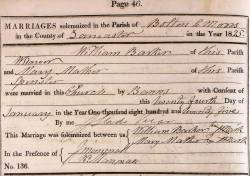 Page 46.
MARRIAGES solemnized in the Parish of Bolton le Moors
in the County of Lancaster in the Year 1825.
William Barker of this Parish
Weaver
and Mary Mather of this Parish
Spinster
were married in this Church by Banns
this Twenty fourth Day of
January in the Year One thousand eight hundred and twenty five
By me Vicar
This Marriage was solemnized between us William Barker
Mary Mather
In the Presence of
No. 136.